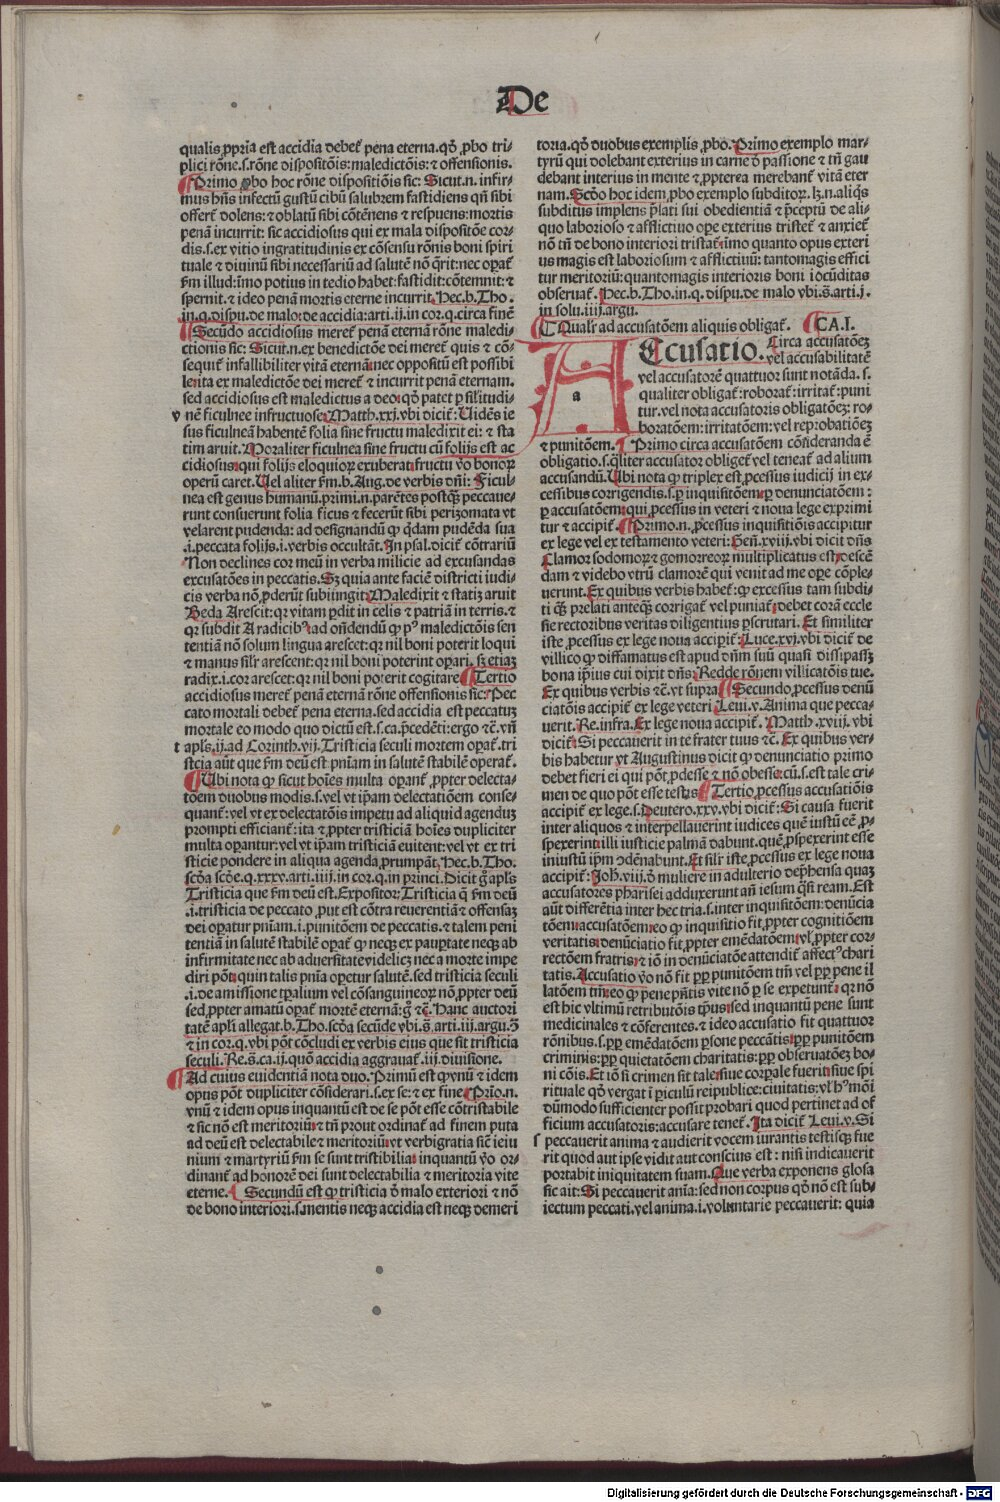 De
qualis ꝓpria est accidia debet᷑ pena eterna.qđ ꝓbo tri-
plici rōne.s.rōne dispositōis: maledictōis: ⁊ offensionis.
Primo ꝓbo hoc rōne dispositiōis sic: Sicut.n. infir-
mus hn̄s infectū gustū cibū salubrem fastidiens qn̄ sibi
offert᷑ dolens: ⁊ oblatū sibi cōtēnens ⁊ respuens: mortis
penā incurrit: sic accidiosus qui ex mala dispositōe cor-
dis.s.ex vitio ingratitudinis ex cōsensu rōnis boni spiri
tuale ⁊ diuinū sibi necessariū ad salutē nō q̄rit: nec opat᷑
fm illud: īmo potius in tedio habet: fastidit: cōtemnit: ⁊
spernit. ⁊ ideo penā mortis eterne incurrit. Hec.b.Tho.
in.q.dispu.de malo: de accidia: arti.ij.in cor.q.circa finē
Secūdo accidiosus meret᷑ penā eternā rōne maledi-
ctionis sic: Sicut.n.ex benedictōe dei meret᷑ quis ⁊ cō-
sequit᷑ infallibiliter vitā eternā: nec oppositū est possibi
le: ita ex maledictōe dei meret᷑ ⁊ incurrit penā eternam.
sed accidiosus est maledictus a deo: qđ patet ꝑ sil̄itudi-
v
nē ficulnee infructuose. Matth.xxj.vbi dicit᷑: Uidēs ie
sus ficulneā habentē folia sine fructu maledixit ei: ⁊ sta
tim aruit. Moraliter ficulnea sine fructu cū folijs est ac
cidiosus: qui folijs eloquioꝝ exuberat: fructu v̄o bonoꝝ
operū caret. Uel aliter fm.b.Aug.de verbis dn̄i: Ficul-
nea est genus humanū.primi.n.parētes postq̄ꝫ peccaue-
runt consuerunt folia ficus ⁊ fecerūt sibi perizomata vt
velarent pudenda: ad designandū ꝙ q̄dam pudēda sua
.i.peccata folijs.i.verbis occultāt. In psal.dicit᷑ cōtrariū
Non declines cor meū in verba milicie ad excusandas
excusatōes in peccatis. Sꝫ quia ante faciē districti iudi-
cis verba nō ꝓderūt subiungit: Maledixit ⁊ statiꝫ aruit
Beda Arescit: qꝛ vitam ꝑdit in celis ⁊ patriā in terris. ⁊
qꝛ subdit A radicibꝰ: ad on̄dendū ꝙ pꝰ maledictōis sen
tentiā nō solum lingua arescet: qꝛ nil boni poterit loqui
⁊ manus sil̄r arescent: qꝛ nil boni poterint opari. sꝫ etiaꝫ
radix.i.cor arescet: qꝛ nil boni poterit cogitare. Tertio
accidiosus meret᷑ penā eternā rōne offensionis sic: Pec
cato mortali debet᷑ pena eterna.sed accidia est peccatuꝫ
mortale eo modo quo dictū est.s.ca.p̄cedēti: ergo ⁊c̄.vn̄
t
apl̄s.ij.ad Corinth.vij. Tristicia seculi mortem opat᷑. tri
sticia aūt que fm deū est pn̄iam in salutē stabilē operat᷑.
Ubi nota ꝙ sicut hoīes multa opant᷑ ꝓpter delecta-
tōem duobus modis.s.vel vt ip̄am delectatiōem conse-
quant᷑: vel vt ex delectatōis impetu ad aliquid agenduꝫ
prompti efficiant᷑: ita ⁊ ꝓpter tristiciā hoīes dupliciter
multa opantur: vel vt ip̄am tristiciā euitent: vel vt ex tri
sticie pondere in aliqua agenda ꝓrumpāt. Hec.b.Tho.
scđa scđe.q.xxxv.arti.iiij.in cor.q.in princi. Dicit g̊ apl̄s
Tristicia que fm deū est. Expositor: Tristicia q̄ fm deū
.i.tristicia de peccato ꝓut est cōtra reuerentiā ⁊ offensaꝫ
dei opatur pn̄iam.i.punitōem de peccatis. ⁊ talem peni
tentiā in salutē stabilē opat᷑ ꝙ neqꝫ ex paupertate neqꝫ ab
infirmitate nec ab aduersitate videlicꝫ nec a morte impe
diri pōt: quin talis pn̄ia opetur salutē. sed tristicia seculi
.i.de amissione tꝑalium vel cōsanguineoꝝ nō ꝓpter deū
sed ꝓpter amatū opat᷑ mortē eternā: g̊ ⁊c̄. Hanc auctori
tatē apl̄i allegat.b.Tho.scđa secūde vbi.s̄.arti.iij.argu.3̄
⁊ in cor.q.vbi pōt cōcludi ex verbis eius que sit tristicia
seculi. Re.s̄.ca.ij.quō accidia aggrauat᷑.iij.diuisione.
Ad cuius euidentiā nota duo. Primū est ꝙ vnū ⁊ idem
opus pōt dupliciter cōsiderari.s.ex se: ⁊ ex fine. Prīo.n.
vnū ⁊ idem opus inquantū est de se pōt esse cōtristabile
⁊ sic nō est meritoriū: ⁊ tn̄ prout ordinat᷑ ad finem puta
ad deū est delectabile ⁊ meritoriū: vt verbigratia sīē ieiu
nium ⁊ martyriū fm se sunt tristibilia: inquantū v̄o or-
dinant᷑ ad honorē dei sunt delectabilia ⁊ meritoria vite
eterne. Secundū est ꝙ tristicia d̄ malo exteriori ⁊ nō
de bono interiori.s.mentis neqꝫ accidia est neqꝫ demeri
toria.qđ duobus exemplis ꝓbo. Primo exemplo mar-
tyrū qui dolebant exterius in carne d̄ passione ⁊ tn̄ gau
debant interius in mente ⁊ ꝓpterea merebant᷑ vitā eter
nam. Scđo hoc idem ꝓbo exemplo subditoꝝ. lꝫ.n.aliq̄s
subditus implens p̄lati sui obedientiā ⁊ p̄ceptū de ali-
quo laborioso ⁊ afflictiuo ope exterius tristet᷑ ⁊ anxiet᷑
nō tn̄ de bono interiori tristat᷑: īmo quanto opus exteri
us magis est laboriosum ⁊ afflictiuū: tantomagis effici
tur meritoriū: quantomagis interioris boni iocūditas
obseruat᷑. Hec.b.Tho.in.q.dispu.de malo vbi.s̄.arti.j.
in solu.iiij.argu.
Qualr̄ ad accusatōem aliquis obligat᷑. CA.I.
a
Accusatio. Circa accusatōeꝫ
vel accusabilitatē
vel accusatorē quattuor sunt notāda.s.
qualiter obligat᷑: roborat᷑: irritat᷑: puni
tur. vel nota accusatoris obligatōeꝫ: ro-
boratōem: irritatōem: vel reprobatiōeꝫ
⁊ punitōem. Primo circa accusatōem cōsideranda ē
obligatio.s.qualiter accusator obliget᷑ vel teneat᷑ ad alium
accusandū. Ubi nota ꝙ triplex est ꝓcessus iudicij in ex-
cessibus corrigendis.s.ꝑ inquisitōem: ꝑ denunciatōem:
ꝑ accusatōem: qui ꝓcessus in veteri ⁊ noua lege exprimi
tur ⁊ accipit᷑. Primo.n.ꝓcessus inquisitiōis accipitur
ex lege vel ex testamento veteri: Gen̄.xviij.vbi dicit dn̄s
Clamor sodomoꝝ ⁊ gomorreoꝝ multiplicatus est: descē
dam ⁊ videbo vtrū clamorē qui venit ad me ope cōple-
uerunt. Ex quibus verbis habet᷑: ꝙ excessus tam subdi-
ti q̄ꝫ prelati anteq̄ꝫ corrigat᷑ vel puniat᷑: debet corā eccle
sie rectoribus veritas diligentius ꝑscrutari. Et similiter
iste ꝓcessus ex lege noua accipit᷑: Luce.xvj.vbi dicit᷑ de
villico ꝙ diffamatus est apud dn̄m suū quasi dissipasꝫ
bona ip̄ius cui dixit dn̄s: Redde rōnem villicatōis tue.
Ex quibus verbis ⁊c̄.vt supra. Secundo ꝓcessus denū
ciatōis accipit᷑ ex lege veteri Leui.v. Anima que pecca-
uerit. Re.infra. Ex lege noua accipit᷑. Matth.xviij.vbi
dicit᷑: Si peccauerit in te frater tuus ⁊c̄. Ex quibus ver-
bis habetur vt Augustinus dicit ꝙ denunciatio primo
debet fieri ei qui pōt ꝓdesse ⁊ nō obesse: cū.s.est tale cri-
men de quo pōt esse testis. Tertio ꝓcessus accusatiōis
accipit᷑ ex lege.s.Deutero.xxv.vbi dicit᷑: Si causa fuerit
inter aliquos ⁊ interpellauerint iudices quē iustū eē ꝑ-
spexerint: illi iusticie palmā dabunt. quē ꝑspexerint esse
iniustū ip̄m ↄdēnabunt. Et sil̄r iste ꝓcessus ex lege noua
accipit᷑: Joh̄.viij.d̄ muliere in adulterio dep̄hensa quaꝫ
accusatores pharisei adduxerunt añ iesum q̄si ream. Est
aūt differētia inter hec tria.s.inter inquisitōem: denūcia
tōem: accusatōem: eo ꝙ inquisitio fit ꝓpter cognitiōem
veritatis: denūciatio fit ꝓpter emēdatōem: vl̄ ꝓpter cor-
rectōem fratris: ⁊ iō in denūciatōe attendit᷑ affectꝰ chari
tatis. Accusatio v̄o nō fit ꝓꝑ punitōem tm̄ vel ꝓꝑ pene il
latōem tm̄: eo ꝙ pene pn̄tis vite nō ꝑ se expetunt᷑: qꝛ nō
est hic vltimū retributōis tp̄us: sed inquantū pene sunt
medicinales ⁊ cōferentes. ⁊ ideo accusatio fit quattuor
rōnibus.s.ꝓꝑ emēdatōem ꝑsone peccātis: ꝓꝑ punitōem
criminis: ꝓꝑ quietatōem charitatis: ꝓꝑ obseruatōeꝫ bo-
ni cōis. Et iō si crimen sit tale: siue corꝑale fuerit: siue spi
rituale qđ vergat ī ꝑiculū reipublice: ciuitatis: vl̄ hꝰmōi
dūmodo sufficienter possit probari quod pertinet ad of
ficium accusatoris: accusare tenet᷑. Ita dicit᷑ Leui.v. Si
f
peccauerit anima ⁊ audierit vocem iurantis testisqꝫ fue
rit quod aut ipse vidit aut conscius est: nisi indicauerit
portabit iniquitatem suam. Que verba exponens glosa
sic ait: Si peccauerit aīa: sed non corpus qđ nō est sub-
iectum peccati.vel anima.i.voluntarie peccauerit: quia
Digitalisierung gefördert durch die Deutsche Forschungsgemeinschaft - DFG